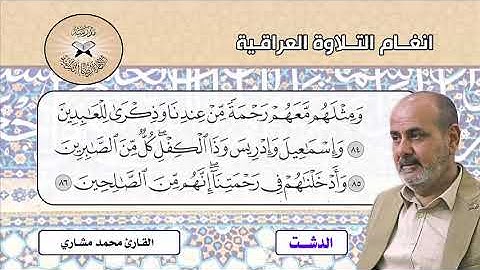 انغــام التــلاوة العــراقيـة
وَمِثْلَهُم مَّعَهُمْ رَحْمَةً مِّنْ عِندِنَا وَذِكْرَىٰ لِلْعَٰبِدِينَ
٨٤ وَإِسْمَٰعِيلَ وَإِدْرِيسَ وَذَا ٱلْكِفْلِۖ كُلٌّ مِّنَ ٱلصَّٰبِرِينَ
٨٥ وَأَدْخَلْنَٰهُمْ فِى رَحْمَتِنَآۖ إِنَّهُم مِّنَ ٱلصَّٰلِحِينَ ٨٦
الدشــت
القارئ محمد مشاري